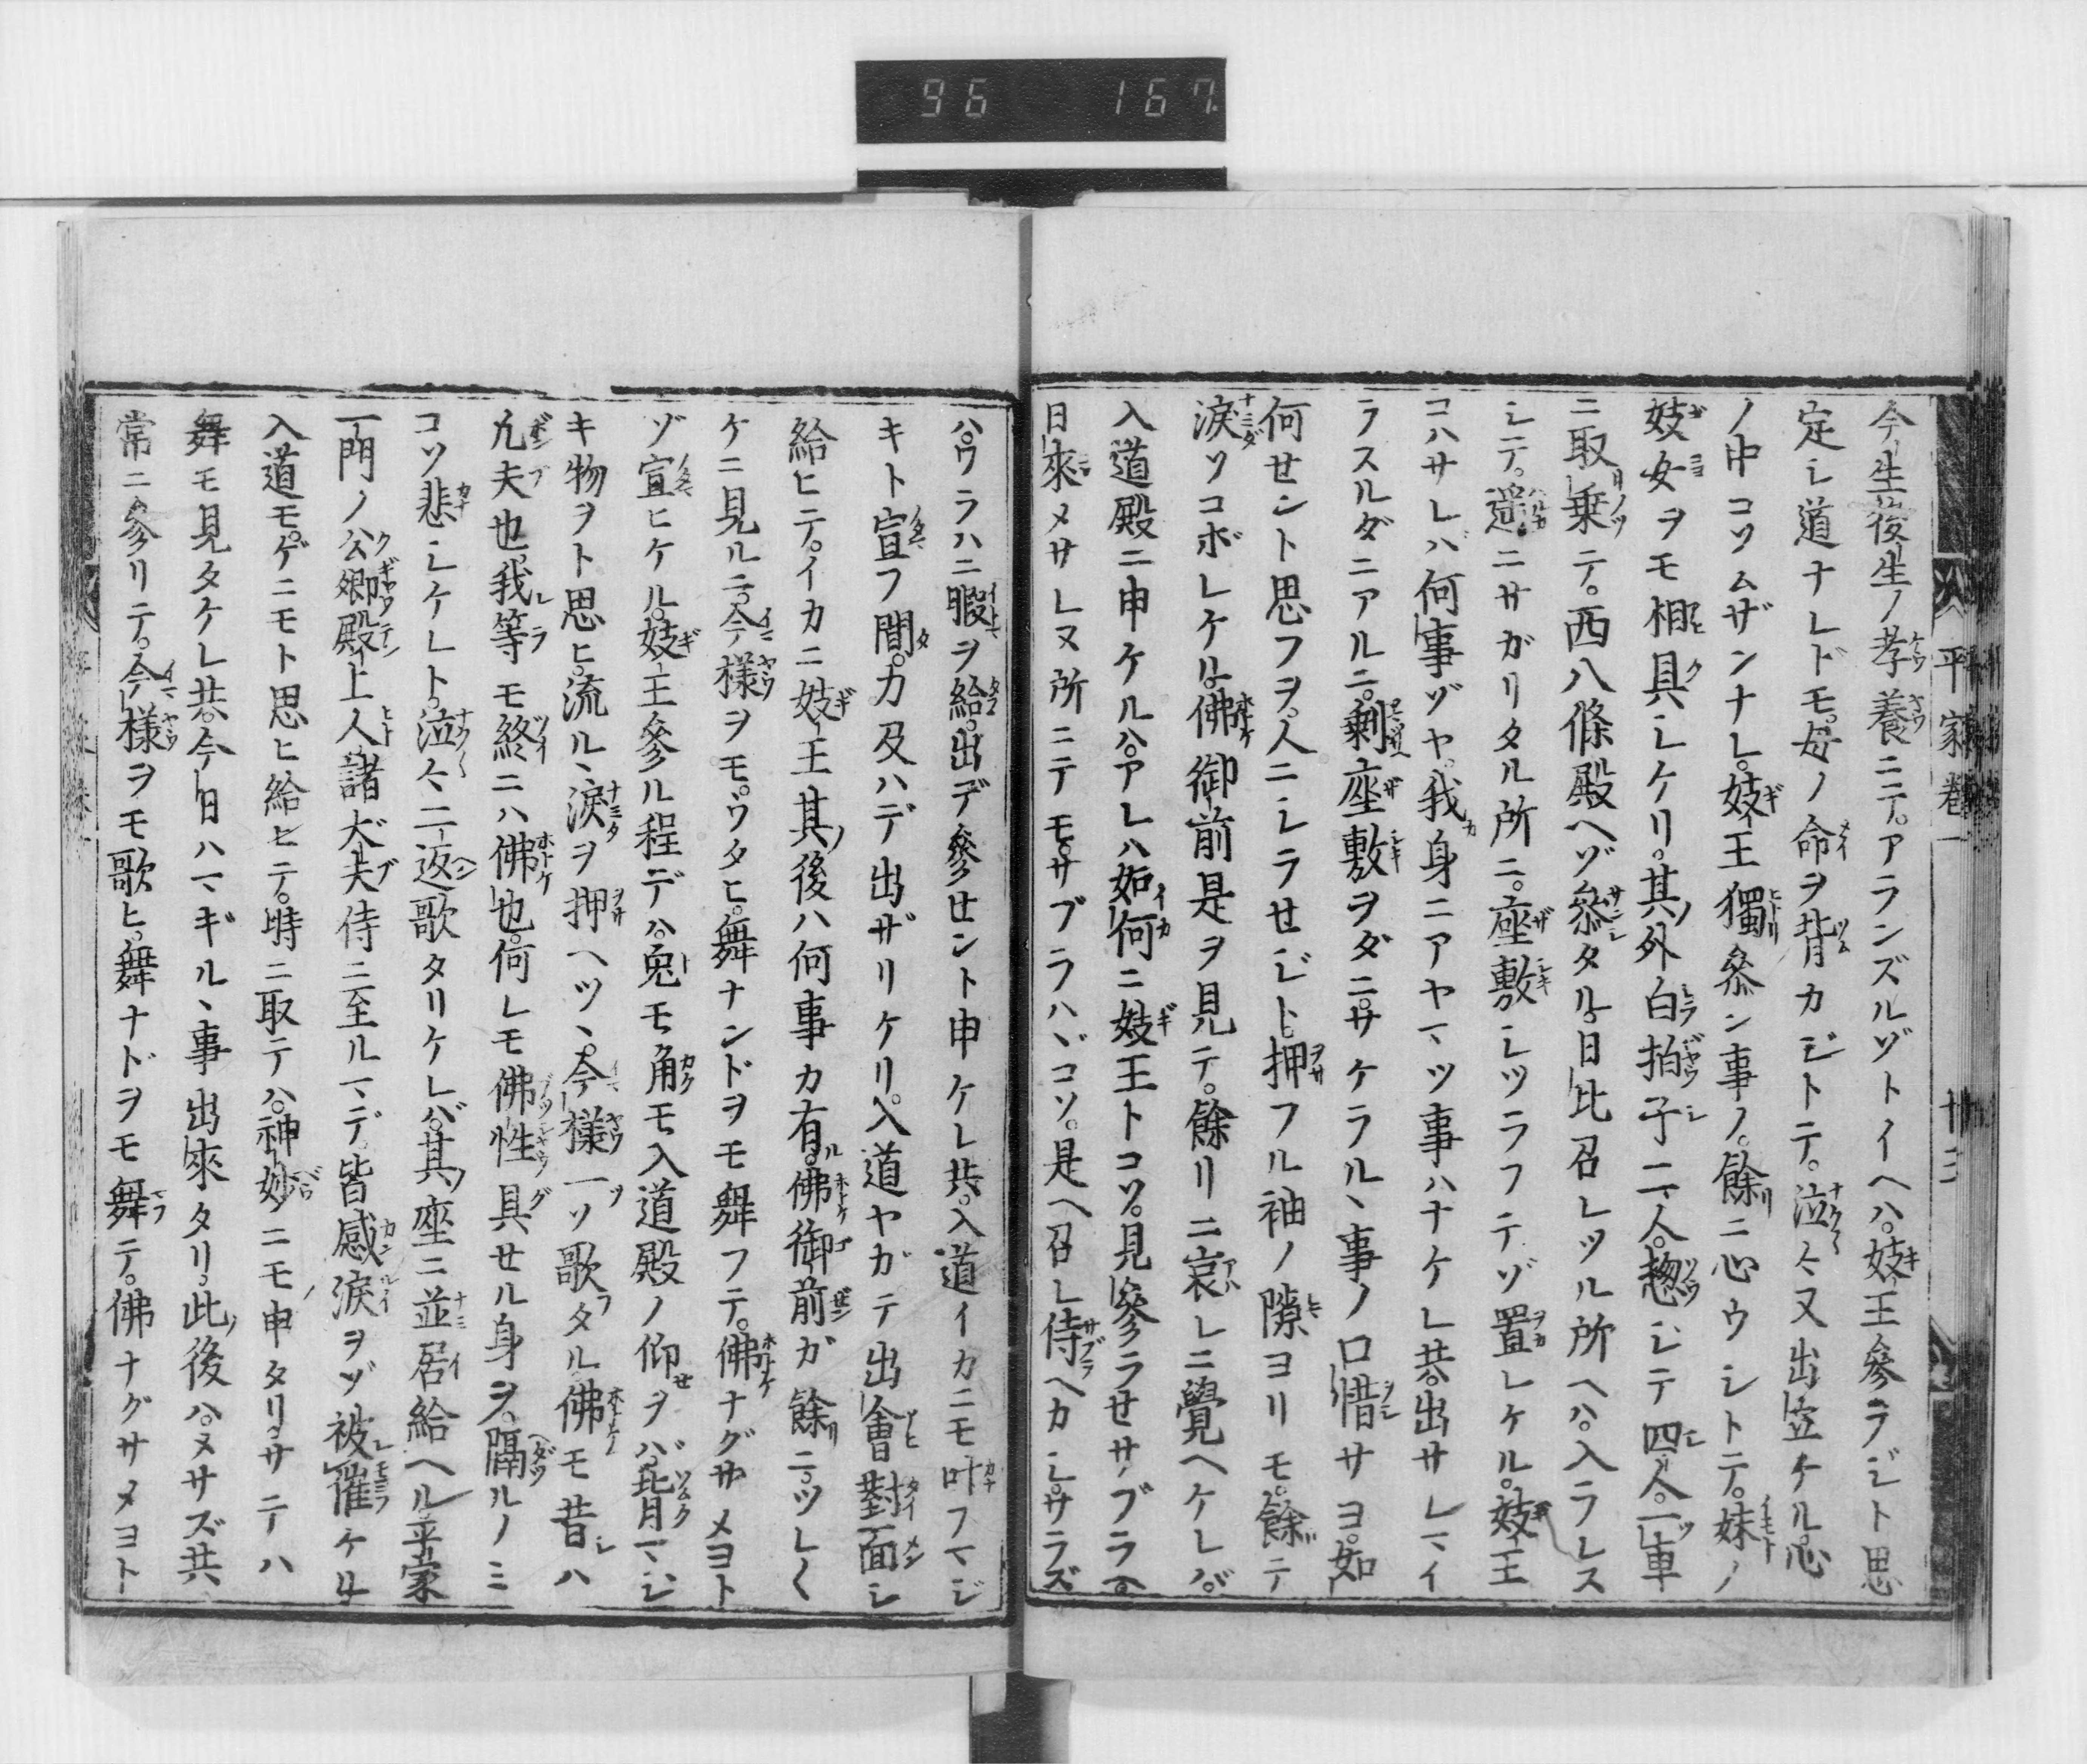 96 167
平家巻一 廿三
今生後生ノ孝養ニテ。アランズルゾトイヘハ。妓王參ラジト思
定シ道ナレドモ。母ノ命ヲ背カジトテ。泣々又出立ケル。心
ノ中コソムザンナレ。妓王獨參ン事ノ。餘ニ心ウシトテ。妹ノ
妓女ヲモ相具シケリ。其外白拍子二人。惣シテ四人。一車
ニ取乗テ。西八條殿ヘゾ參タル。日比召レツル所ヘハ。入ラレス
シテ。遥ニサガリタル所ニ。座敷シツラフテゾ置レケル。妓王
コハサレバ何事ゾヤ。我身ニアヤマツ事ハナケレ共。出サレマイ
ラスルダニアルニ。剰座敷ヲダニ。サケラルヽ事ノ口惜サヨ。如
何せント思フヲ。人ニシラせジト。押フル袖ノ隙ヨリモ。餘テ
淚ソコボレケル。佛御前是ヲ見テ。餘リニ哀レニ覺ヘケレバ。
入道殿ニ申ケルハ。アレハ如何ニ妓王トコソ。見參ラせサブラヘ
日來メサレヌ所ニテモ。サブラハヾコソ。是ヘ召レ侍ヘカシ。サラズ
ハ。ワラハニ暇ヲ給。出デ參せント申ケレ共。入道イカニモ叶フマジ
キト宣フ間。力及ハデ出ザリケリ。入道ヤガテ出會對面シ
給ヒテ。イカニ妓王其後ハ何事カ有。佛御前ガ餘ニ。ツレ〱
ケニ見ルニ。今樣ヲモ。ウタヒ。舞ナンドヲモ舞フテ。佛ナグサメヨト
ゾ宣ヒケル。妓王參ル程デハ。兎モ角モ入道殿ノ仰ヲバ。背マジ
キ物ヲト思ヒ。流ルヽ淚ヲ押ヘツヽ。今樣一ソ歌タル。佛モ昔ハ
凡夫也。我等モ終ニハ佛也。何レモ佛性具せル身ヲ。隔ルノミ
コソ悲シケレト。泣々二返歌タリケレバ。其座ニ並居給ヘル平家
一門ノ公卿殿上人。諸大夫侍ニ至ルマデ。皆感淚ヲゾ被催ケル
入道モ。ゲニモト思ヒ給ヒテ。時ニ取テハ。神妙ニモ申タリ。サテハ
舞モ見タケレ共。今日ハマギルヽ事出來タリ。此後ハ。メサズ共
常ニ參リテ。今樣ヲモ歌ヒ。舞ナドヲモ舞テ。佛ナグサメヨト